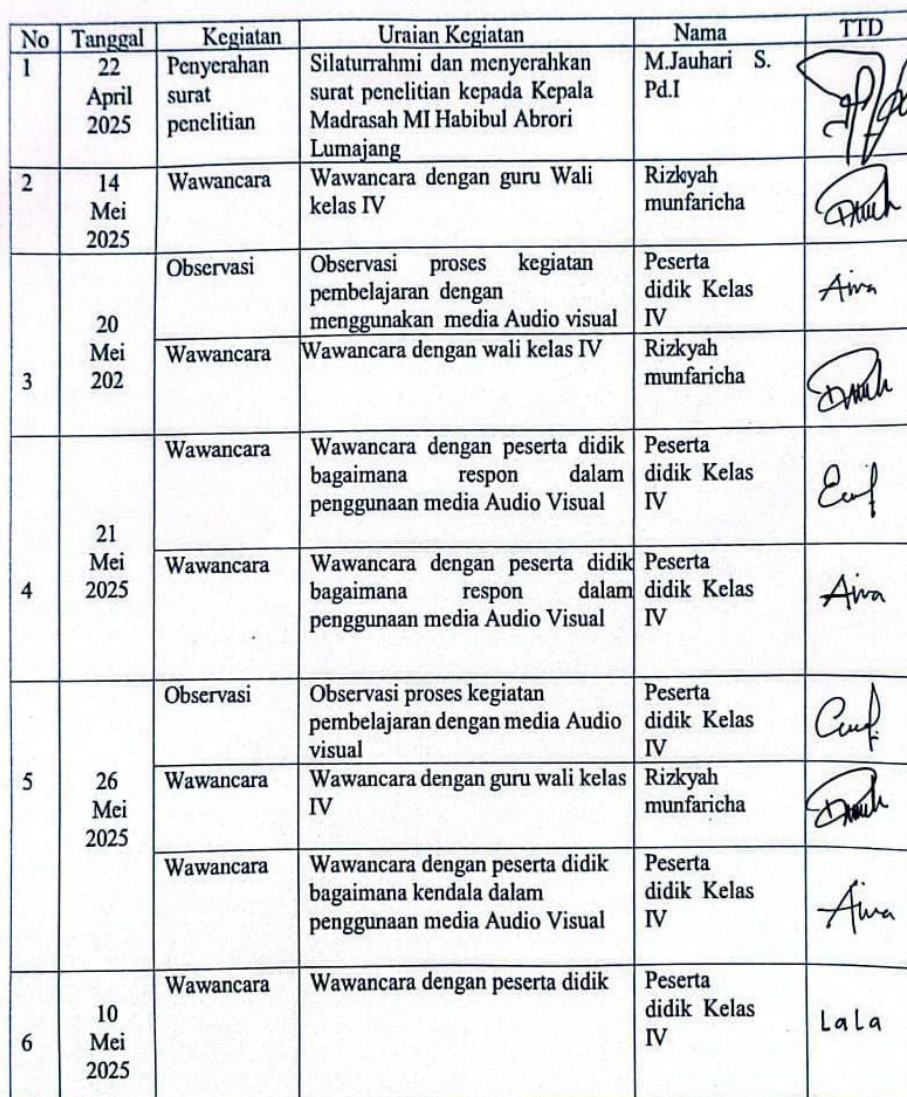 No Tanggal Kegiatan Uraian Kegiatan Nama TTD
1
22
April
2025
Penyerahan
surat
penelitian
Silaturrahmi dan menyerahkan
surat penelitian kepada Kepala
Madrasah MI Habibul Abrori
Lumajang
M.Jauhari S.
Pd.I
2
14
Mei
2025
Wawancara
Wawancara dengan guru Wali
kelas IV
Rizkyah
munfaricha
3
20
Mei
202
Observasi
Observasi proses kegiatan
pembelajaran dengan
menggunakan media Audio visual
Peserta
didik Kelas
IV
Wawancara
Wawancara dengan wali kelas IV
Rizkyah
munfaricha
4
21
Mei
2025
Wawancara
Wawancara dengan peserta didik
bagaimana respon dalam
penggunaan media Audio Visual
Peserta
didik Kelas
IV
Wawancara
Wawancara dengan peserta didik
bagaimana respon dalam
penggunaan media Audio Visual
Peserta
didik Kelas
IV
5
26
Mei
2025
Observasi
Observasi proses kegiatan
pembelajaran dengan media Audio
visual
Peserta
didik Kelas
IV
Wawancara
Wawancara dengan guru wali kelas
IV
Rizkyah
munfaricha
Wawancara
Wawancara dengan peserta didik
bagaimana kendala dalam
penggunaan media Audio Visual
Peserta
didik Kelas
IV
6
10
Mei
2025
Wawancara
Wawancara dengan peserta didik
Peserta
didik Kelas
IV
Lala